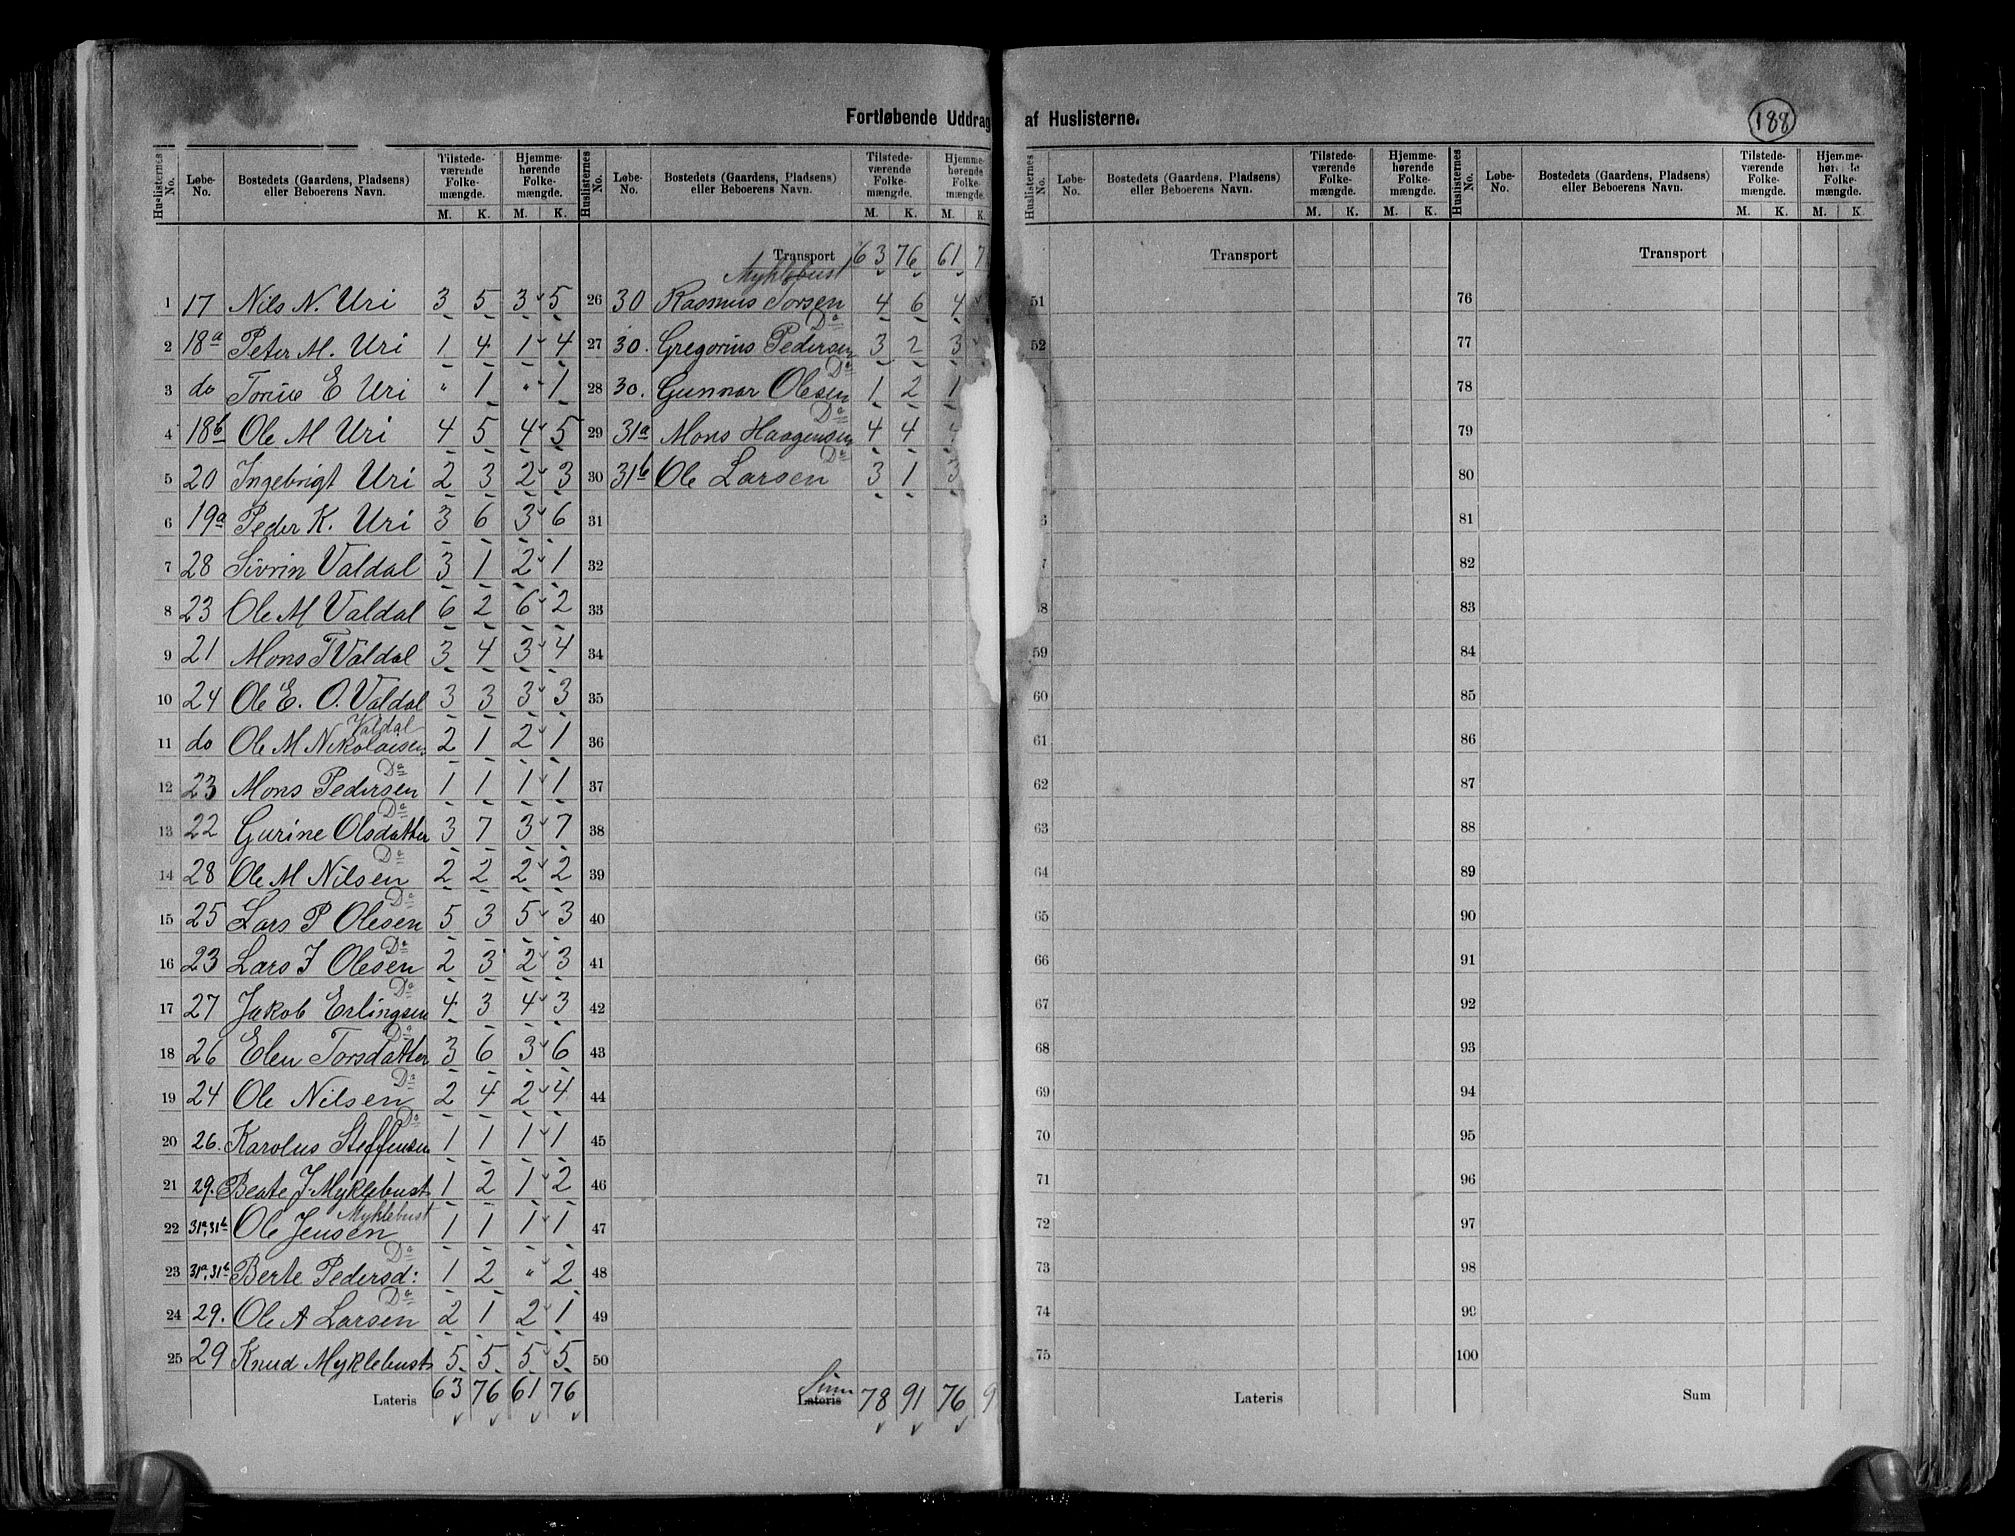 Fortløbende Uddrag af Huslisterne.
188
Huslisternes No. | Løbe-No. | Bostedets (Gaardens, Pladsens) eller Beboerens Navn. | Tilstedeværende Folkemængde. M. K. | Hjemmehørende Folkemængde. M. K.
1 17 Nils N. Uri 3 5 3 5
2 18a Peter M. Uri 1 4 1 4
3 do E Uri " 1 " 1
4 18b Ole M Uri 4 5 4 5
5 20 Ingebrigt Uri 2 3 2 3
6 19a Peder K. Uri 3 6 3 6
7 28 Sivrin Valdal 3 1 2 1
8 23 Ole M Valdal 6 2 6 2
9 21 Mons T Valdal 3 4 3 4
10 24 Ole E. O. Valdal 3 3 3 3
Valdal
11 do Ole M Nikolaisen 2 1 2 1
Do
12 23 Mons Pedersen 1 1 1 1
Do
13 22 Gurine Olsdatter 3 7 3 7
Do
14 28 Ole M Nilsen 2 2 2 2
Do
15 25 Lars P Olesen 5 3 5 3
Do
16 23 Lars J Olesen 2 3 2 3
Do
17 27 Jakob Erlingsen 4 3 4 3
Do
18 26 Elen Torsdatter 3 6 3 6
Do
19 24 Ole Nilsen 2 4 2 4
Do
20 26. Karolus Steffensen 1 1 1 1
21 29. Beate J. Myklebust 1 2 1 2
Myklebust
22 31a, 31b Ole Jensen 1 1 1 1
Do
23 31a, 31b Berte Pedersd: 1 2 " 2
Do
24 29. Ole A Larsen 2 1 2 1
25 29 Knud Myklebust 5 5 5 5
Lateris 63 76 61 76
Huslisternes No. | Løbe-No. | Bostedets (Gaardens, Pladsens) eller Beboerens Navn. | Tilstedeværende Folkemængde. M. K. | Hjemmehørende Folkemængde. M. K.
Transport 63 76 61 7
Myklebust
26 30 Rasmus Torsen 4 6 4
Do
27 30. Gregorius Pedersen 3 2 3
Do
28 30. Gunnar Olesen 1 2 1
Do
29 31a Mons Haagensen 4 4
Do
30 31b Ole Larsen 3 1 3
31
32
33
34
35
36
37
38
39
40
41
42
43
44
45
46
47
48
49
50
Sum
Lateris 78 91 76 9
Huslisternes No. | Løbe-No. | Bostedets (Gaardens, Pladsens) eller Beboerens Navn. | Tilstedeværende Folkemængde. M. K. | Hjemmehørende Folkemængde. M. K.
Transport
51
52
59
60
61
62
63
64
65
66
67
68
69
70
71
72
73
74
75
Lateris
Huslisternes No. | Løbe-No. | Bostedets (Gaardens, Pladsens) eller Beboerens Navn. | Tilstedeværende Folkemængde. M. K. | Hjemmehørende Folkemængde. M. K
Transport
76
77
78
79
80
81
82
83
84
85
86
87
88
89
90
91
92
93
94
95
96
97
98
99
100
Sum